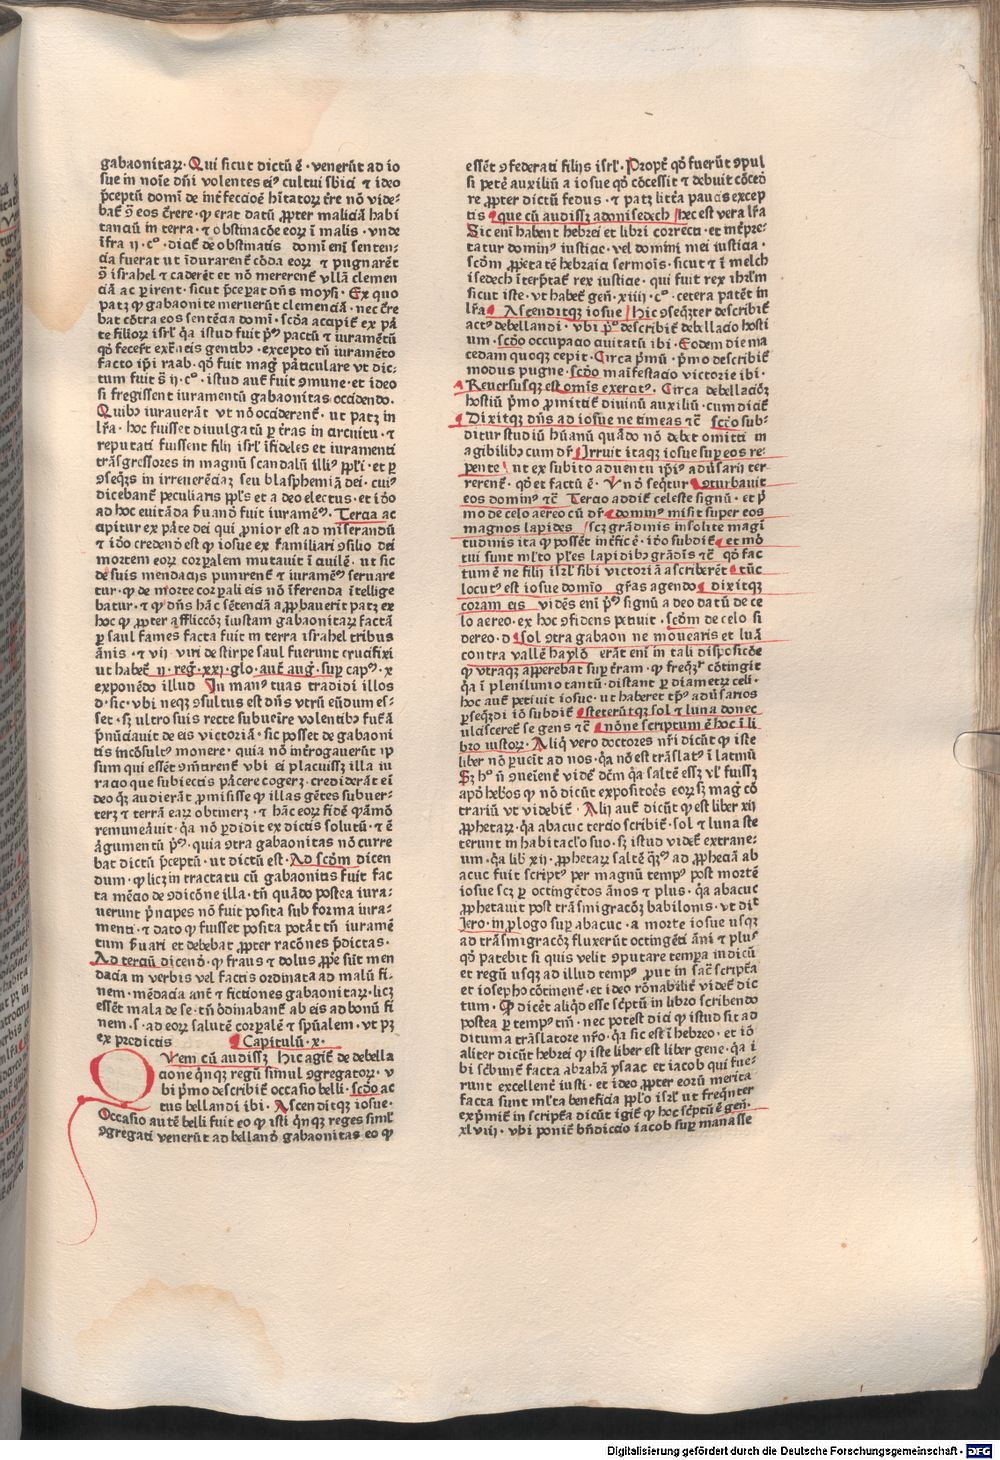 gabaonitaꝝ. Qui sicut dictū ē. venerūt ad io
sue in noīe dn̄i volentes eiꝰ cultui sb̄ici ⁊ ideo
p̄ceptū domī de int̄fectioē h̄itatoꝝ t̄re nō vide⸗
bat̄ ꝯ eos c̄rere. ꝙ erat datū ꝓpter maliciā habi
tanciū in terra. ⁊ obstinacōe eoꝝ ī malis. vnde
īfra ij. cº. dicit̄ de obstinatis domī enī senten⸗
cia fuerat ut īdurarent̄ corda eoꝝ ⁊ pugnarēt
ꝯ israhel ⁊ caderēt et nō mererent̄ vllā clemen
ciā ac perirent. sicut p̄ceperat dn̄s moysi. Ex quo
patꝫ ꝙ gabaonite meruerūt clemenciā. nec t̄re
bat cōtra eos sentēcia domī. scd̄a accipit̄ ex pā
te filioꝝ isrl̄ q̄a istud fuit pꝰ pactū ⁊ iuramētū
qd̄ fecerūt ext̄neis gentibꝰ. excepto tn̄ iuramēto
facto ip̄i raab. qd̄ fuit maḡ pāticulare vt dic⸗
tum fuit s̄ ij. cº. istud aut̄ fuit ꝯmune. et ideo
si fregissent iuramentū gabaonitas occidendo.
Quibꝰ iurauerāt vt nō occiderent̄. ut patꝫ in
lr̄a. hoc fuisset diuulgatū per t̄ras in circuitu. ⁊
reputati fuissent filij isrl̄ ifideles et iuramenti
trāsgressores in magnū scandalū illiꝰ ppl̄i. et ꝑ
ꝯseq̄ns in irreuerēciaꝫ seu blasphemiā dei. cuiꝰ
dicebant̄ peculiaris ppl̄s et a deo electus. et idō
ad hoc euitādā s̄uand̄ fuit iuramēꝰ. Tercia ac
cipitur ex pāte dei qui pronior est ad miserandū
⁊ idō credend̄ est ꝙ iosue ex familiari ꝯsilio dei
mortem eoꝝ corꝑalem mutauit ī ciuilē. ut sic
de suis mendacijs punirent̄ ⁊ iuramēꝰ seruare
tur. ꝙ de morte corꝑali eis nō īferenda ītellige
batur. ⁊ ꝙ dn̄s hāc sētenciā aꝓbauerit patꝫ ex
hoc ꝙ ꝓpter afflictiōꝫ īiustam gabaonitaꝝ factā
ꝑ saul fames facta fuit in terra israhel tribus
ānis. ⁊ vij viri de stirpe saul fuerunt crucifixi
ut habet̄ ij. reḡ. xxi. glo. aut̄ auḡ. sup capꝰ. x
exponēdo illud In manꝰ tuas tradidi illos
d. sic. vbi neqꝫ ꝯsultus est dn̄s vtrū eūdum es⸗
set. sꝫ ultro suis recte subueīre volentibꝰ futā
p̄nūciauit de eis victoriā. sic posset de gabaoni
tis incōsultꝰ monere. quia nō int̄rogauerūt ip
sum qui essēt ꝯm̄rent̄ vbi ei placuissꝫ illa iu
racio que subiectis pācere cogerꝫ. crediderāt eī
deo qꝫ audierāt promisisse ꝙ illas gētes subuer⸗
terꝫ ⁊ terrā earꝝ obtinerꝫ. ⁊ hāc eoꝝ fidē quāmō
remuneāuit. q̄a nō perdidit ex dictis solutū. ⁊ ē
ārgumentū pꝰ. quia ꝯtra gabaonitas nō curre
bat dictū p̄ceptū. ut dictū est. Ad scd̄m dicen
dum. ꝙ licꝫ in tractatu cū gabaonitis fuit fac
ta mēcio de ꝯdicōne illa. tn̄ quādo postea iura⸗
uerunt p̄ncipes nō fuit posita sub forma iura⸗
menti. ⁊ dato ꝙ fuisset posita potāt tn̄ iuramē
tum s̄uari et debebat ꝓpter racōnes p̄dictas.
Ad terciū dicend̄. ꝙ fraus ⁊ dolus ꝓpe sūt men
dacia in verbis vel factis ordinata ad malū fi⸗
nem. mēdacia aut̄ ⁊ fictiones gabaonitaꝝ. licꝫ
essēt mala de se. tn̄ ōdinabant̄ ab eis ad bonū fi
nem. s. ad eoꝝ salutē corꝑalē ⁊ sp̄ualem. vt pꝫ
ex predictis Capitulū. x.
Qvem cū audissꝫ hic agit̄ de debella
cione q̄nqꝫ regū simul ꝯgregatoꝝ. v
bi p̄mo describit̄ occasio belli. scd̄o ac
tus bellandi ibi. Ascenditqꝫ iosue.
Occasio autē belli fuit eo ꝙ isti q̄nqꝫ reges siml̄
ꝯgregati venerūt ad belland̄ gabaonitas eo ꝙ
essēt ꝯfederati filijs isrl̄. Propt̄ qd̄ fuerūt ꝯpul
si petē auxiliū a iosue qd̄ cōcessit ⁊ debuit cōced̄
re ꝓpter dictū fedus. ⁊ patꝫ litēa paucis excep
tis que cū audissꝫ adonisedech hec est vera lr̄a
Sic enī habent hebrei et libri correcti. et int̄pre⸗
tatur dominꝰ iusticie. vel domini mei iusticia.
scd̄m ꝓpetatē hebraici sermoīs. sicut ⁊ ī melch
isedech īterp̄tat̄ rex iusticie. qui fuit rex ihrl̄m
sicut iste. vt habet̄ gen̄. xiiij. cº. cetera patēt in
lr̄a Ascenditqꝫ iosue hic ꝯseq̄nter describit̄
actꝰ debellandi. vbi pº describit̄ debellacio hosti
um. scd̄o occupacio ciuitatū ibi. Eodem die ma
cedam quoqꝫ cepit. Circa p̄mū. p̄mo describit̄
modus pugne. scd̄o maīfestacio victorie ibi.
Reuersusqꝫ est omīs exercitꝰ. Circa debellaciōꝫ
hostiū p̄mo p̄mittit̄ diuinū auxiliū. cum dicit̄
Dixitqꝫ dn̄s ad iosue ne timeas ⁊c̄ scd̄o sub⸗
ditur studiū hūanū quādo nō debet omitti in
agibilibꝰ cum dr̄ Irruit itaqꝫ iosue sup eos re⸗
pente ut ex subito aduentu ip̄iꝰ adūsarij ter⸗
rerent̄. qd̄ et factū ē. Vn̄ seq̄tur ꝯturbauit
eos dominꝰ ⁊c̄ Tercio addit̄ celeste signū. et p̄
mo de celo aereo cū dr̄ dominꝰ misit super eos
magnos lapides scꝫ grādinis insolite magī
tudinis ita ꝙ possēt int̄fice ē. idō subdit̄ et mō
tui sunt ml̄to pl̄es lapidibꝰ grādīs ⁊c̄ qd̄ fac
tum ē ne filij isrl̄ sibi victoriā ascriberēt tūc
locutꝰ est iosue domīo gr̄as agendo dixitqꝫ
coram eis vidēs enī pꝰ signū a deo datū de ce
lo aereo. ex hoc ꝯfidens petiuit. scd̄m de celo si
dereo. d sol ꝯtra gabaon ne mouearis et luā
contra vallē haylō erāt enī in tali disposicōe
ꝙ vtraqꝫ apperebat sup t̄ram. ꝙ freqꝫr̄ cōtingit
q̄a ī plenilunio tantū. distant ꝑ diametrꝫ celi.
hoc aut̄ petiuit iosue. ut haberet tp̄ꝰ adūsarios
ꝑseq̄ndi iō subdit̄ steterūtqꝫ sol ⁊ luna donec
ulcisceret̄ se gens ⁊c̄ nōne scriptum ē hoc ī li
bro iustoꝝ. Aliq̄ vero doctores nr̄i dicūt ꝙ iste
liber nō peruēit ad nos. q̄a nō est trāslatꝰ ī latinū
Sꝫ hº n̄ ꝯueient̄ vidēt̄ dēm q̄a saltē essꝫ vl̄ fuissꝫ
apd̄ heb̄os ꝙ nō dicūt expositoēs eoꝝ sꝫ maḡ cō
trariū vt videbit̄. Alij aut̄ dicūt ꝙ est liber xij
ꝓphetaꝝ. q̄a abacuc tercio scribit̄. sol ⁊ luna ste
terunt in habitacl̄o suo. sꝫ istud videt̄ extrane⸗
um. q̄a lib̄ xij. ꝓphetaꝝ saltē q̄ꝫrº ad ꝓpheciā ab
acuc fuit scriptꝰ per magnū tempꝰ post mortē
iosue scꝫ ꝑ octingētos ānos ⁊ plus. q̄a abacuc
ꝓphetauit post trāsmigracōꝫ babilonis. vt dic̄
Jero. in ꝓlogo sup abacuc. a morte iosue usqꝫ
ad trāsmigracōꝫ fluxerūt octingēti āni ⁊ plꝰ
qd̄ patebit si quis velit ꝯputare tempra indicū
et regū usqꝫ ad illud tempꝰ. put in sac̄ scripta
et iosepho cōtinent̄. et ideo rōnabilit̄ videt̄ dic
tum. Qd̄ dicēt aliqd̄ esse sc̄ptū in libro scribendo
postea ꝑ tempꝰ tm̄. nec potest dici ꝙ istud sit ad
ditum a trāslatore nr̄o. q̄a sic est ī hebreo. et iō
aliter dicūt hebrei ꝙ iste liber est liber gene. q̄a i
bi sc̄bunt̄ facta abrahā ysaac et iacob qui fue⸗
runt excellent̄ iusti. et ideo ꝓpter eorū merita
facta sunt ml̄ta beneficia ppl̄o isrl̄ ut freq̄nter
exp̄mit̄ in scriptā dicūt igit̄ ꝙ hoc sc̄ptū ē gen̄.
xlviij. vbi ponit̄ bn̄diccio iacob sup manasse
Digitalisierung gefördert durch die Deutsche Forschungsgemeinschaft - DFG